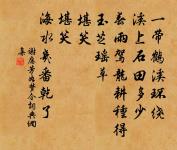 一帶鶴溪環繞
溪上石田多少
春雨駕龍耕種得
玉芝瑤草
堪笑
堪笑
海水幾番乾了
謝應芳如夢令詞典網
集